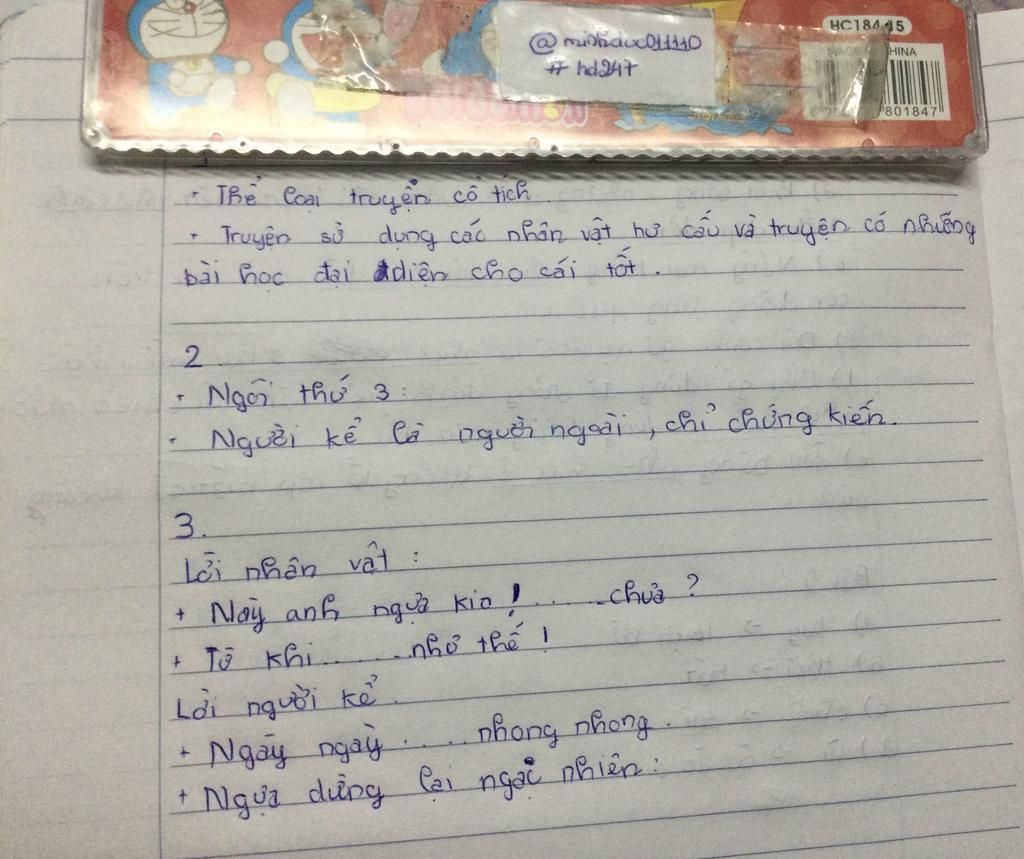 HC184-15
@minhduc011110
# hd247
MADE IN CHINA
801847
- Thể loại truyện cổ tích
- Truyện sử dụng các nhân vật hư cấu và truyện có những
bài học đại diện cho cái tốt.
2
- Ngôi thứ 3:
- Người kể là người ngoài, chỉ chứng kiến.
3.
Lời nhân vật:
+ Này anh ngựa kia! ......chưa?
+ Từ khi ...... như thế!
Lời người kể.
+ Ngày ngày ..... nhong nhong.
+ Ngựa dừng lại ngạc nhiên: